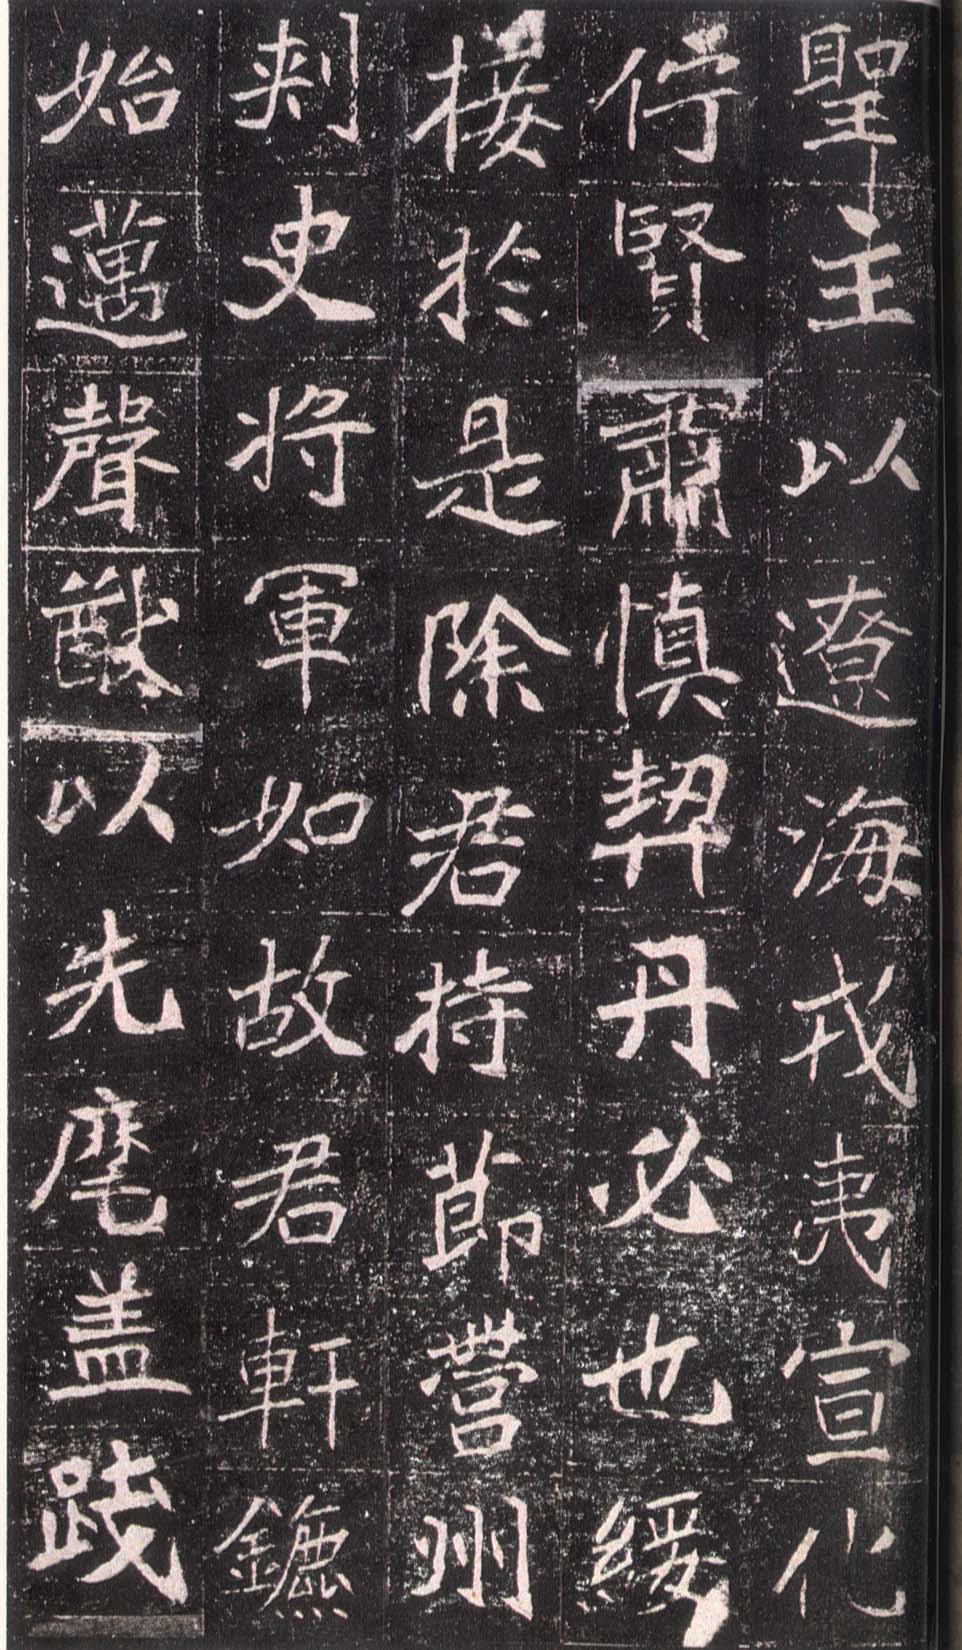 聖主以遼海戎夷宣化
佇賢肅慎契丹必也綏
接於是除君持節營州
刾史將軍如故君軒鑣
始邁聲猷以先麾盖踐